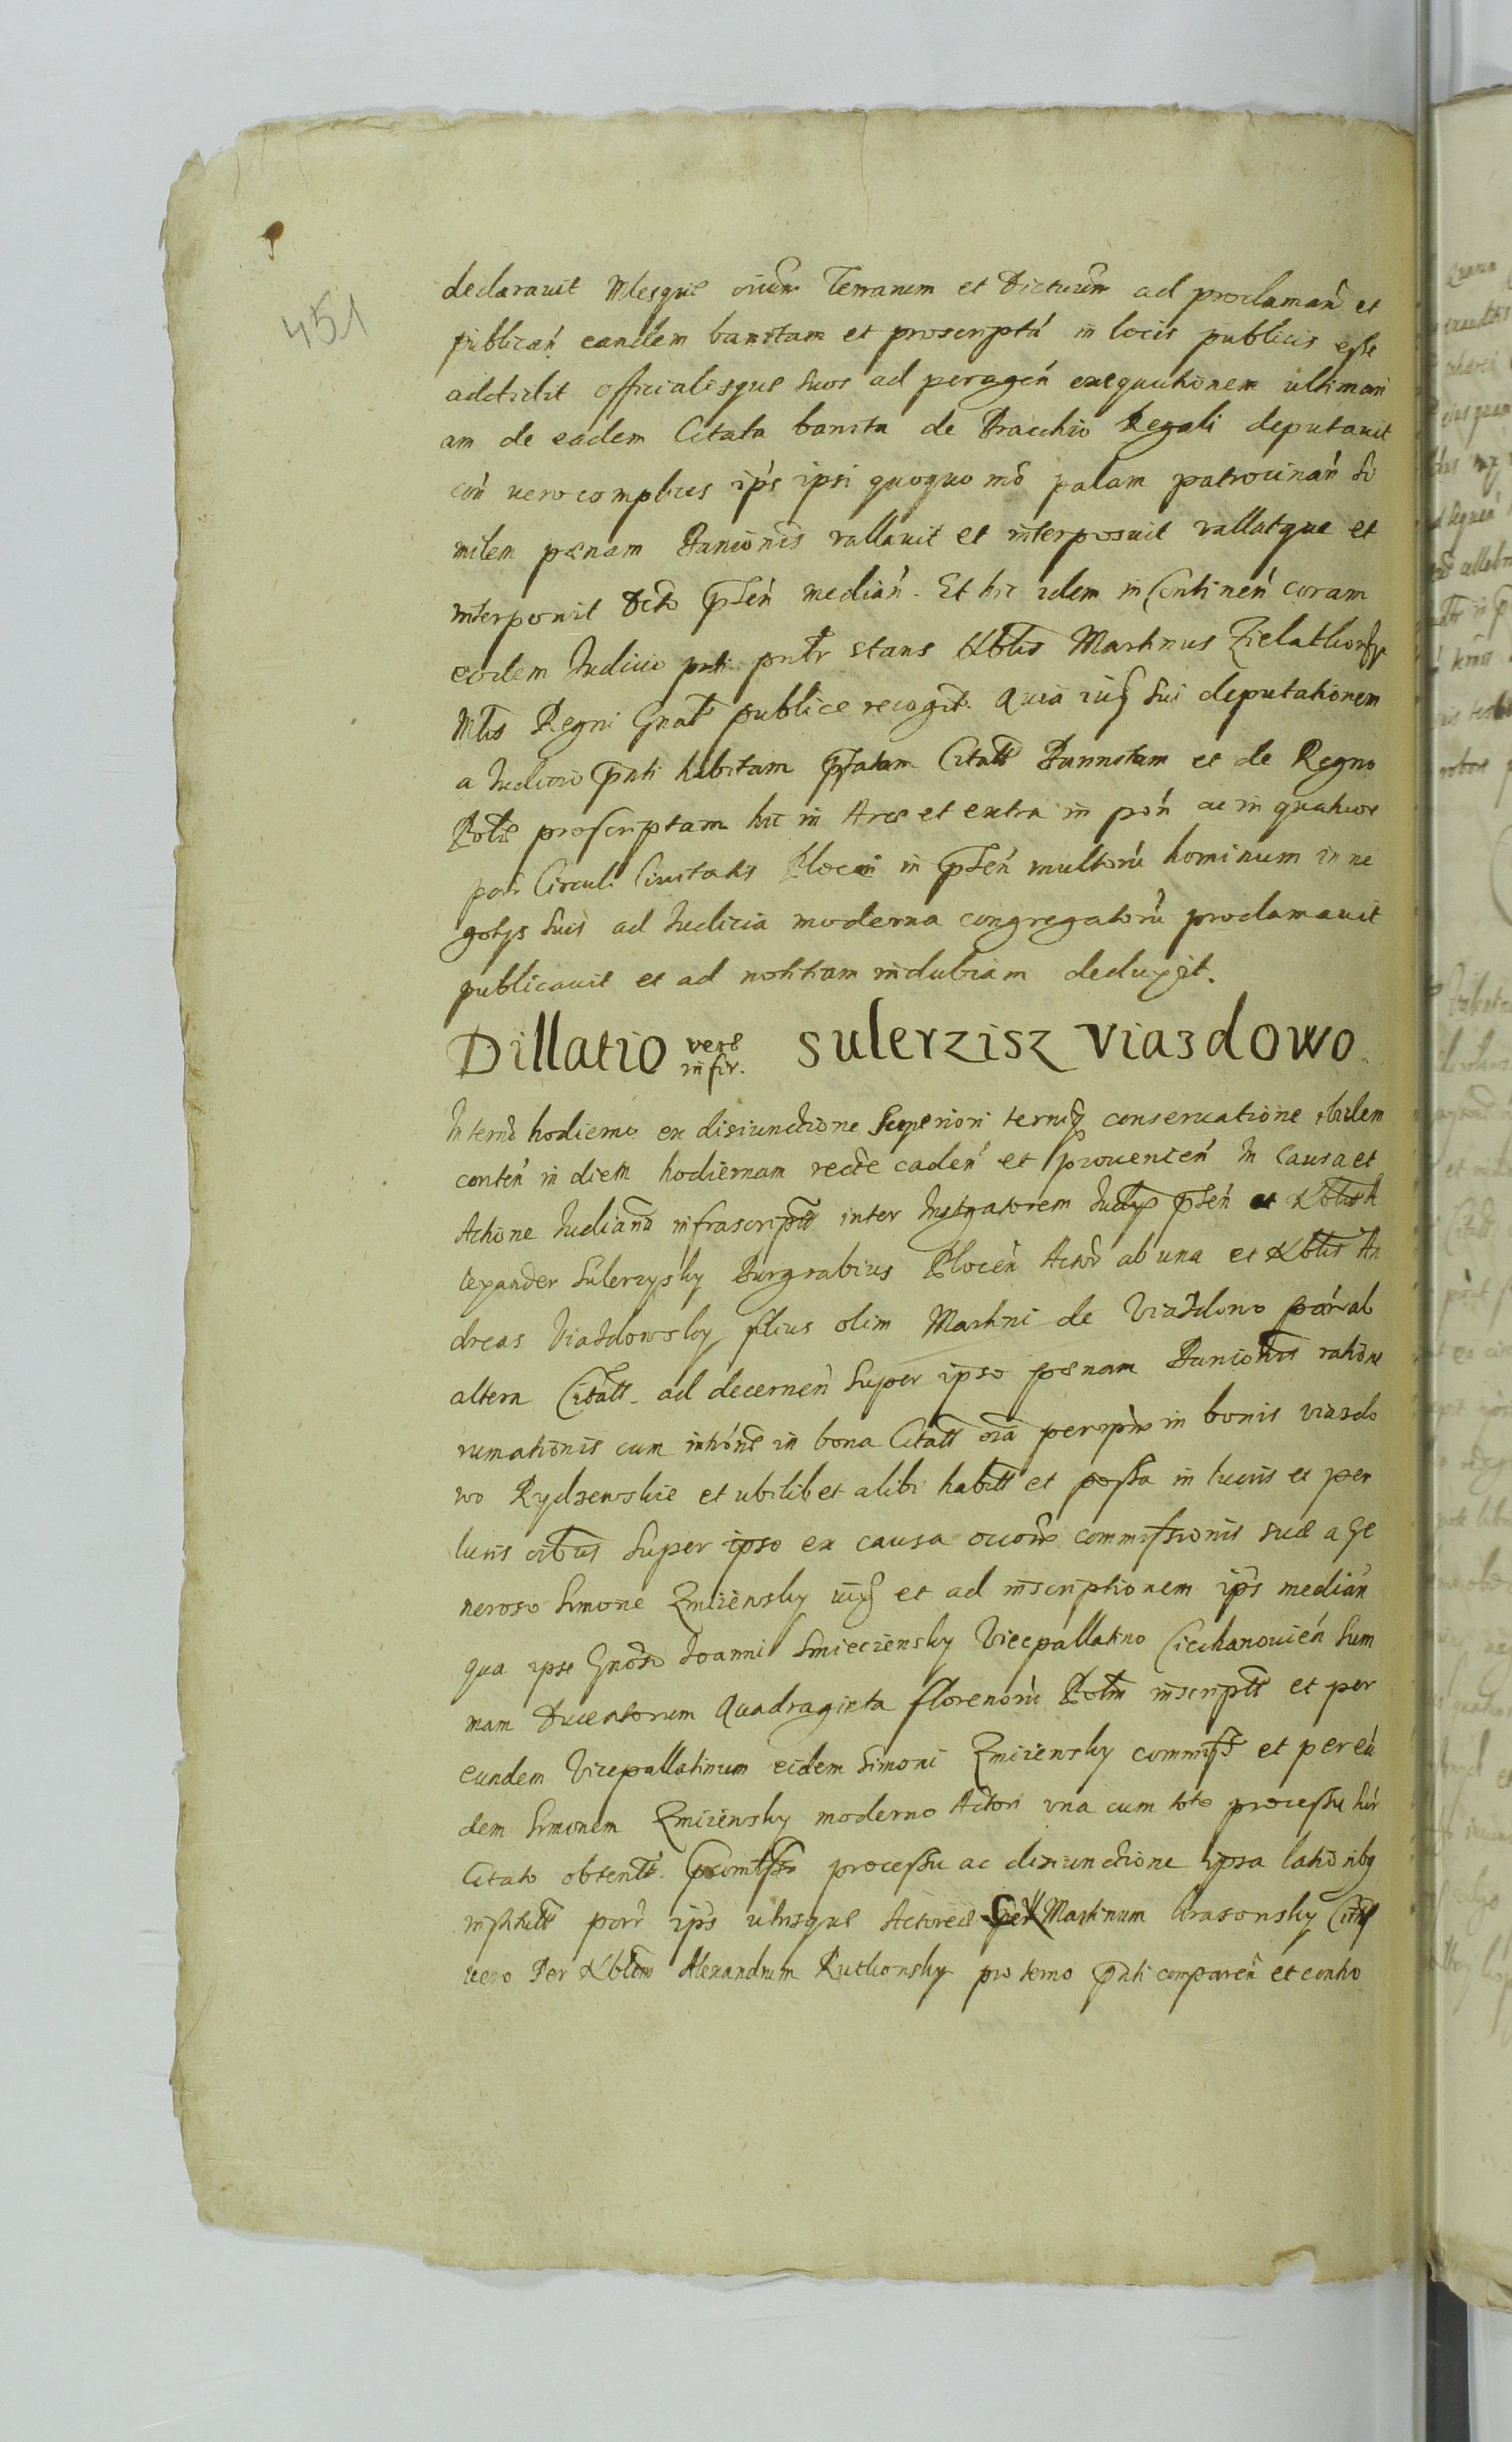 451
declarauit Mlesque oium Terrarum et Dictuum ad proclaman et
publican eandem banitam et proscriptã in locis publicis esse
addidit officialesque suos ad peragen exequutionem ultimari
am de eadem Citata banita de Bracchio Regali deputauit
con vero complices ips ipsi quoquo mõ palam patrocinan Si
milem pænam Banionis vallauit et interposuit vallatque et
interponit Dcto pñten median. Et hic idem in Continen coram
eodem Judicio pnti pntr stans Nblis Martinus Zielathowsky
Mlis Regni Gnalis publice recogt. Quia iux sui deputationem
a Judicio pnti habitam pfatam Citatt Bannitam et de Regno
Polie proscriptam hic in Arce et extra in pon ac in quatuor
par Circuli Ciuitatis Plocen in pñten multorũ hominum in ne
gotys suis ad Judicia moderna congregatorũ proclamauit
publicauit et ad notitiam indubiam deduxit.
Dillatio vere infir. Sulerzisz Viazdowo
In termo hodierno ex disiunctione Superiori termiq conseruatione ibidem
conten in diem hodiernam recte caden et prouenien In Causa et
Actione Judiaria infrascriptt inter Instigatorem Judicy pñten et Nblis A
lexander Sulerzysky Burgrabius Plocen Actor ab una et Nblis An
dreas Viazdowsky filius olim Martini de Viazdowo par ab
altera Citatt. ad decernen Super ipso pænam Banionis ratione
rumationis cum intrõne in bona Citatt oia perипso in bonis viazdo
wo Rydzewskie et ubilibet alibi habitt et possa in lucris et per
lucris oibus Super ipso ex causa occone commissionis suæ a Ge
neroso Simone Zmizensky iux et ad inscriptionem ips median
qua ipse Gnoso Joanni Smieciensky Vicepallatino Ciechanouien Sum
mam Ducentorum Quadraginta florenorũ Polm inscriptt et per
eundem Vicepallatinum eidem Simoni Zmizensky commiss et per eũ
dem Simonem Zmizensky moderno Actori una cum toto processu sur
Citato obtentt. Promisso processu ac disiunctione ipsa lationibq
institutt porr ips utrisque Actoreis per Martinum Krasonsky Citus
vero Per Nblem Alexandrum Rutkonsky pro termo pnti comparen et contro